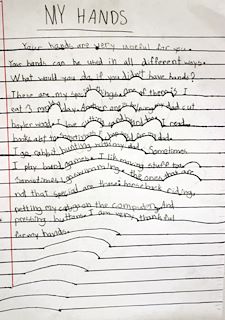 MY HANDS
Your hands are very useful for you.
Your hands can be used in all different ways.
What would you do, if you didn't have hands?
These are my special things. One of them is I
eat 3 meals a day. Another are helping my dad cut
boyler wood. I love I read
books a lot to
I go rabbit hunting with my dad. Sometimes
I play board games. I like making stuff too.
Sometimes I go swimming. The ones that are
not that special are these: horseback riding,
petting my cat, go on the computer. And
pressing buttons. I am very thankful
for my hands.